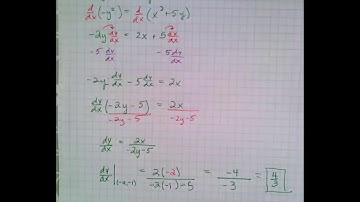 d/dx(-y²) = d/dx(x² + 5y)
-2y dy/dx = 2x + 5 dy/dx
-5 dy/dx -5 dy/dx
-2y dy/dx - 5 dy/dx = 2x
dy/dx (-2y - 5) = 2x
-2y-5 -2y-5
dy/dx = 2x/(-2y-5)
dy/dx |(-2,-1) = 2(-2)/(-2(-1)-5) = -4/-3 = 4/3